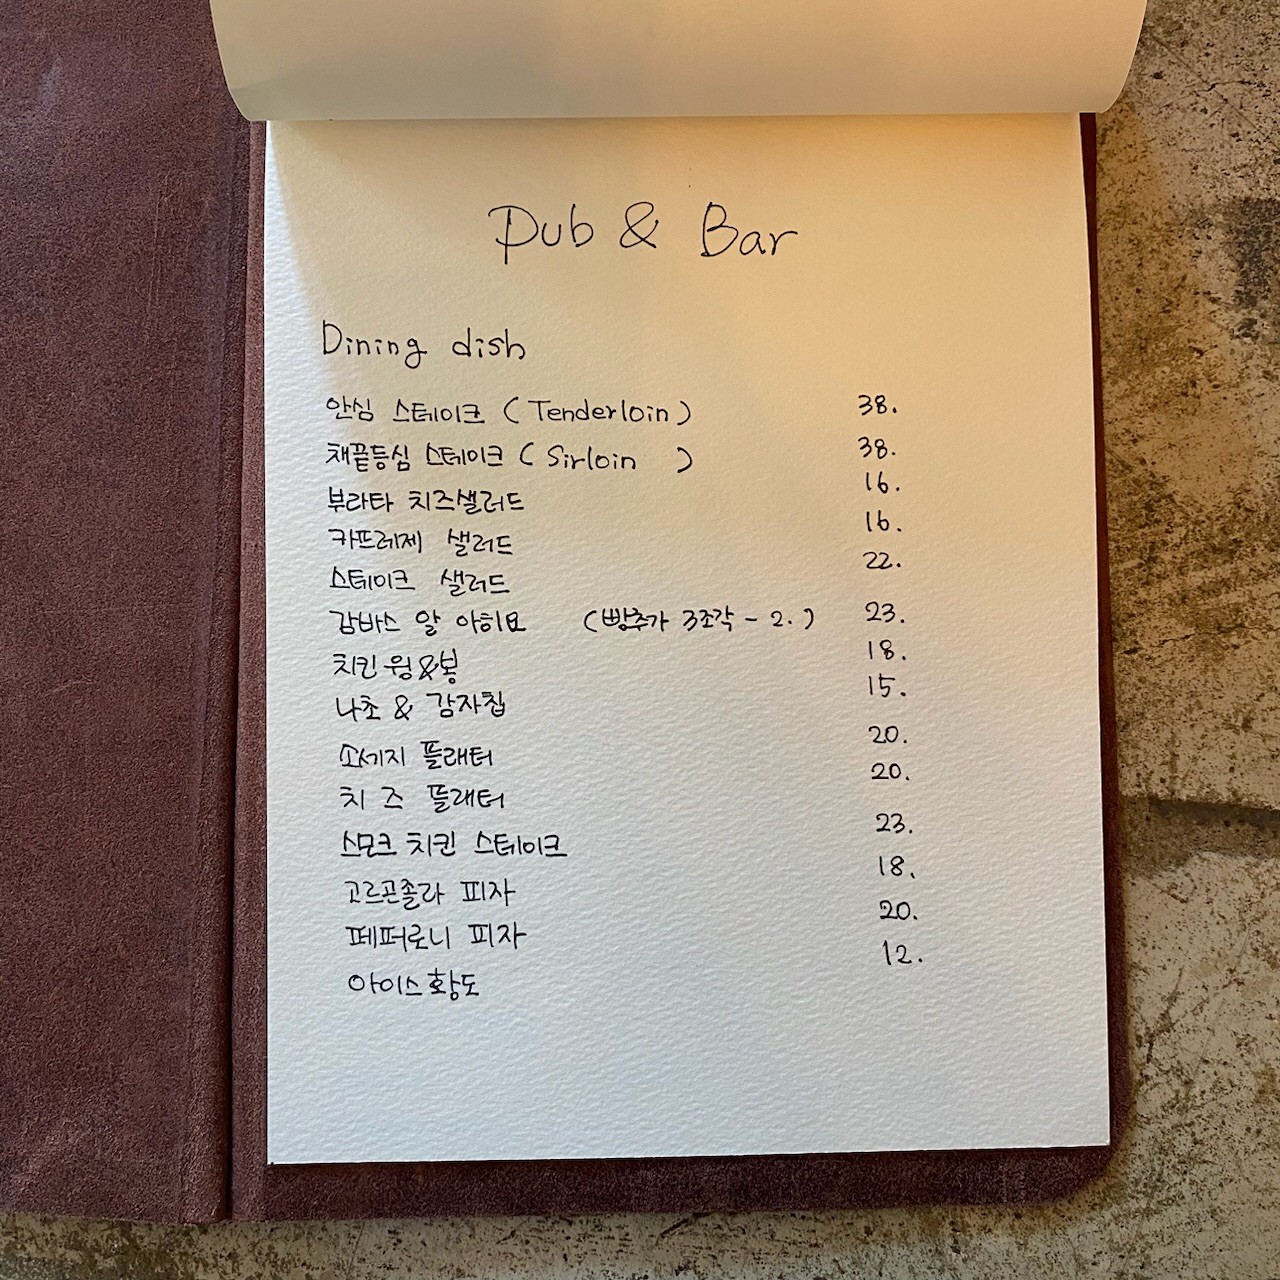 Pub & Bar
Dining dish
안심 스테이크 (Tenderloin) 38.
채끝등심 스테이크 (Sirloin ) 38.
부라타 치즈샐러드 16.
카프레제 샐러드 16.
스테이크 샐러드 22.
감바스 알 아히요 (빵추가 3조각 - 2.) 23.
치킨 윙&봉 18.
나초 & 감자칩 15.
소세지 플래터 20.
치즈 플래터 20.
스모크 치킨 스테이크 23.
고르곤졸라 피자 18.
페퍼로니 피자 20.
아이스황도 12.